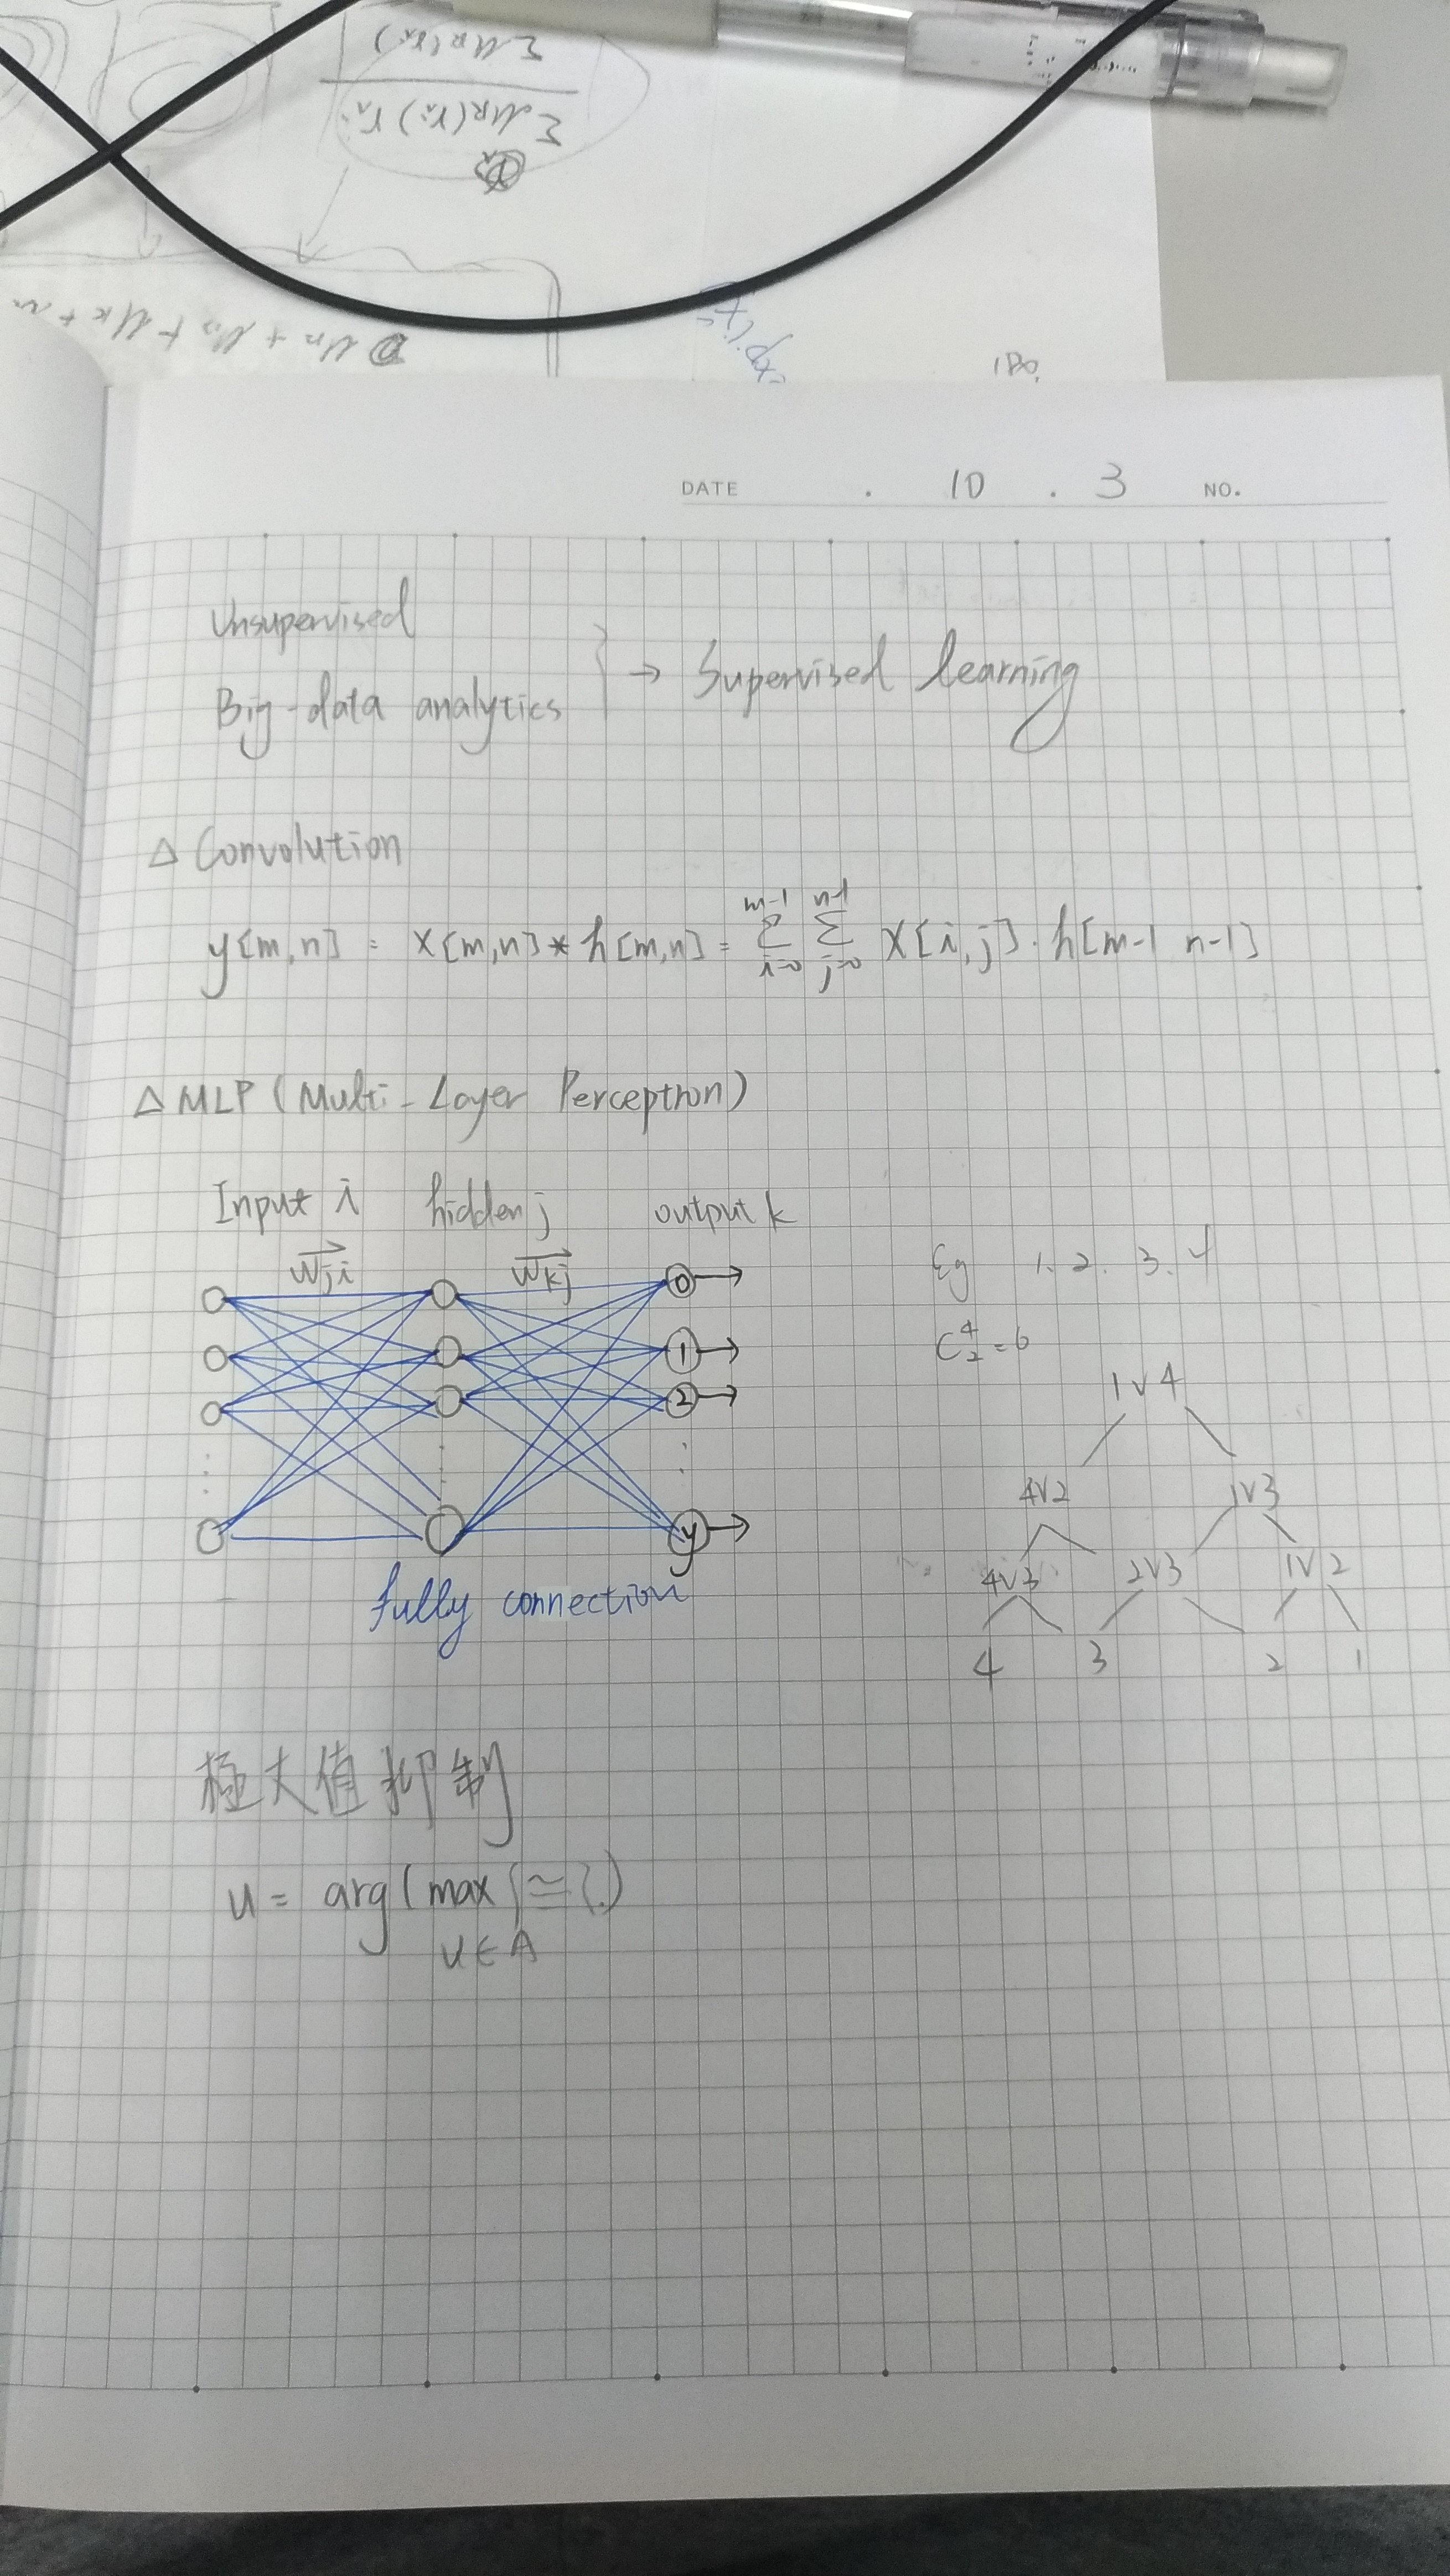 Σ MR(rᵢ)
Σ MR(rᵢ) rᵢ
exp(x
180.
DATE . 10 . 3 NO.
Unsupervised
Big-data analytics
} → Supervised learning
△ Convolution
y[m,n] = x[m,n] * h[m,n] = Σ_{i=0}^{m-1} Σ_{j=0}^{n-1} x[i,j] · h[m-1 n-1]
△ MLP (Multi-Layer Perceptron)
Input i hidden j output k
Wji Wkj
0
1
2
y
fully connection
Eg 1. 2. 3. 4
C⁴₂ = 6
1v4
4v2 1v3
4v3 2v3 1v2
4 3 2 1
極大值抑制
u = arg(max { ≃ ?.)
u∈A